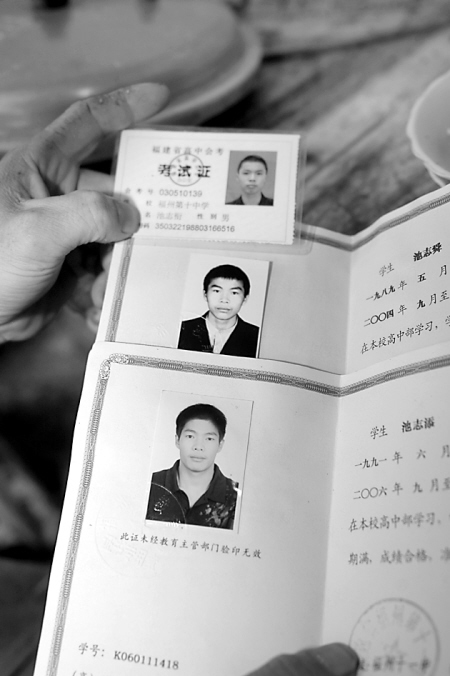 福建省高中会考
考试证
030510139
福州第十中学
池志
性别 男
350322198803166516
学生 池志舜
一九八九 年 五 月
二〇〇四 年 九 月至
在本校高中部学习，学
学生 池志添
一九九一 年 六 月
二〇〇六 年 九 月至
在本校高中部学习，
期满，成绩合格，准
此证未经教育主管部门验印无效
学号：K060111418